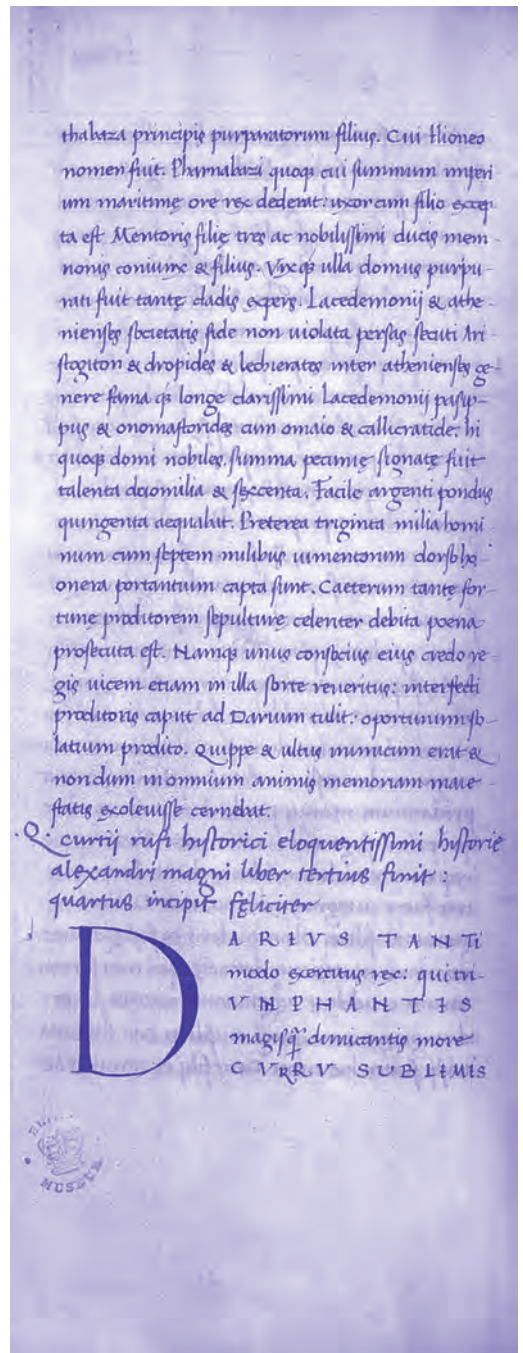 thabaza principis purpuratorum filius. Cui Hioneo
nomen fuit. Pharnabazi quoqꝫ cui summum imperi
um maritimę ore rex dederat: uxor cum filio excep
ta est Mentoris filię tres ac nobilissimi ducis mem-
nonis coniunx & filius. Vixqꝫ ulla domus purpu-
rati fuit tantę cladis expers. Lacedemonij & athe-
nienses societatis fide non uiolata persas secuti Ari
stogiton & dropides & leuhcrates inter athenienses ge-
nere fama qꝫ longe clarissimi Lacedemonij pasip-
pus & onomastorides cum omaio & callicratide: hi
quoqꝫ domi nobiles. summa pecunię signatę fuit
talenta duomilia & sexcenta. Facile argenti pondus
quingenta aequabat. Preterea triginta milia homi
num cum septem milibus iumentorum dorso
onera portantium capta sunt. Caeterum tantę for-
tunę proditorem sepulturę celeriter debita poena
prosecuta est. Namqꝫ unus consocius eius credo re-
gis uicem etiam in illa sorte reueritus: interfecti
proditoris caput ad Darium tulit: oportunum so-
latium prodito. Quippe & ultus inimicum erat &
nondum in omnium animis memoriam maie-
statis exoleuisse cernebat.
·Q· curtij rufi historici eloquentissimi historię
alexandri magni liber tertius finit:
quartus incipit feliciter
DARIVS TANTI
modo exercitus rex: qui tri-
VMPHANTIS
magisq̃ dimicantis more
CVRRV SUBLIMIS
MUSEUM